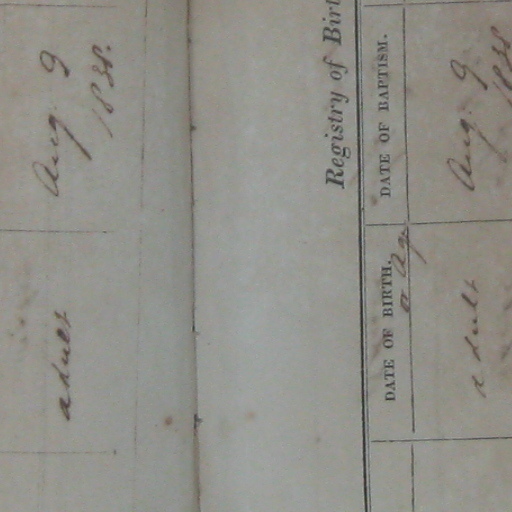 adult Aug. 9
1838.
Registry of Birt
DATE OF BIRTH. DATE OF BAPTISM.
or Age
adult Aug. 9
1838